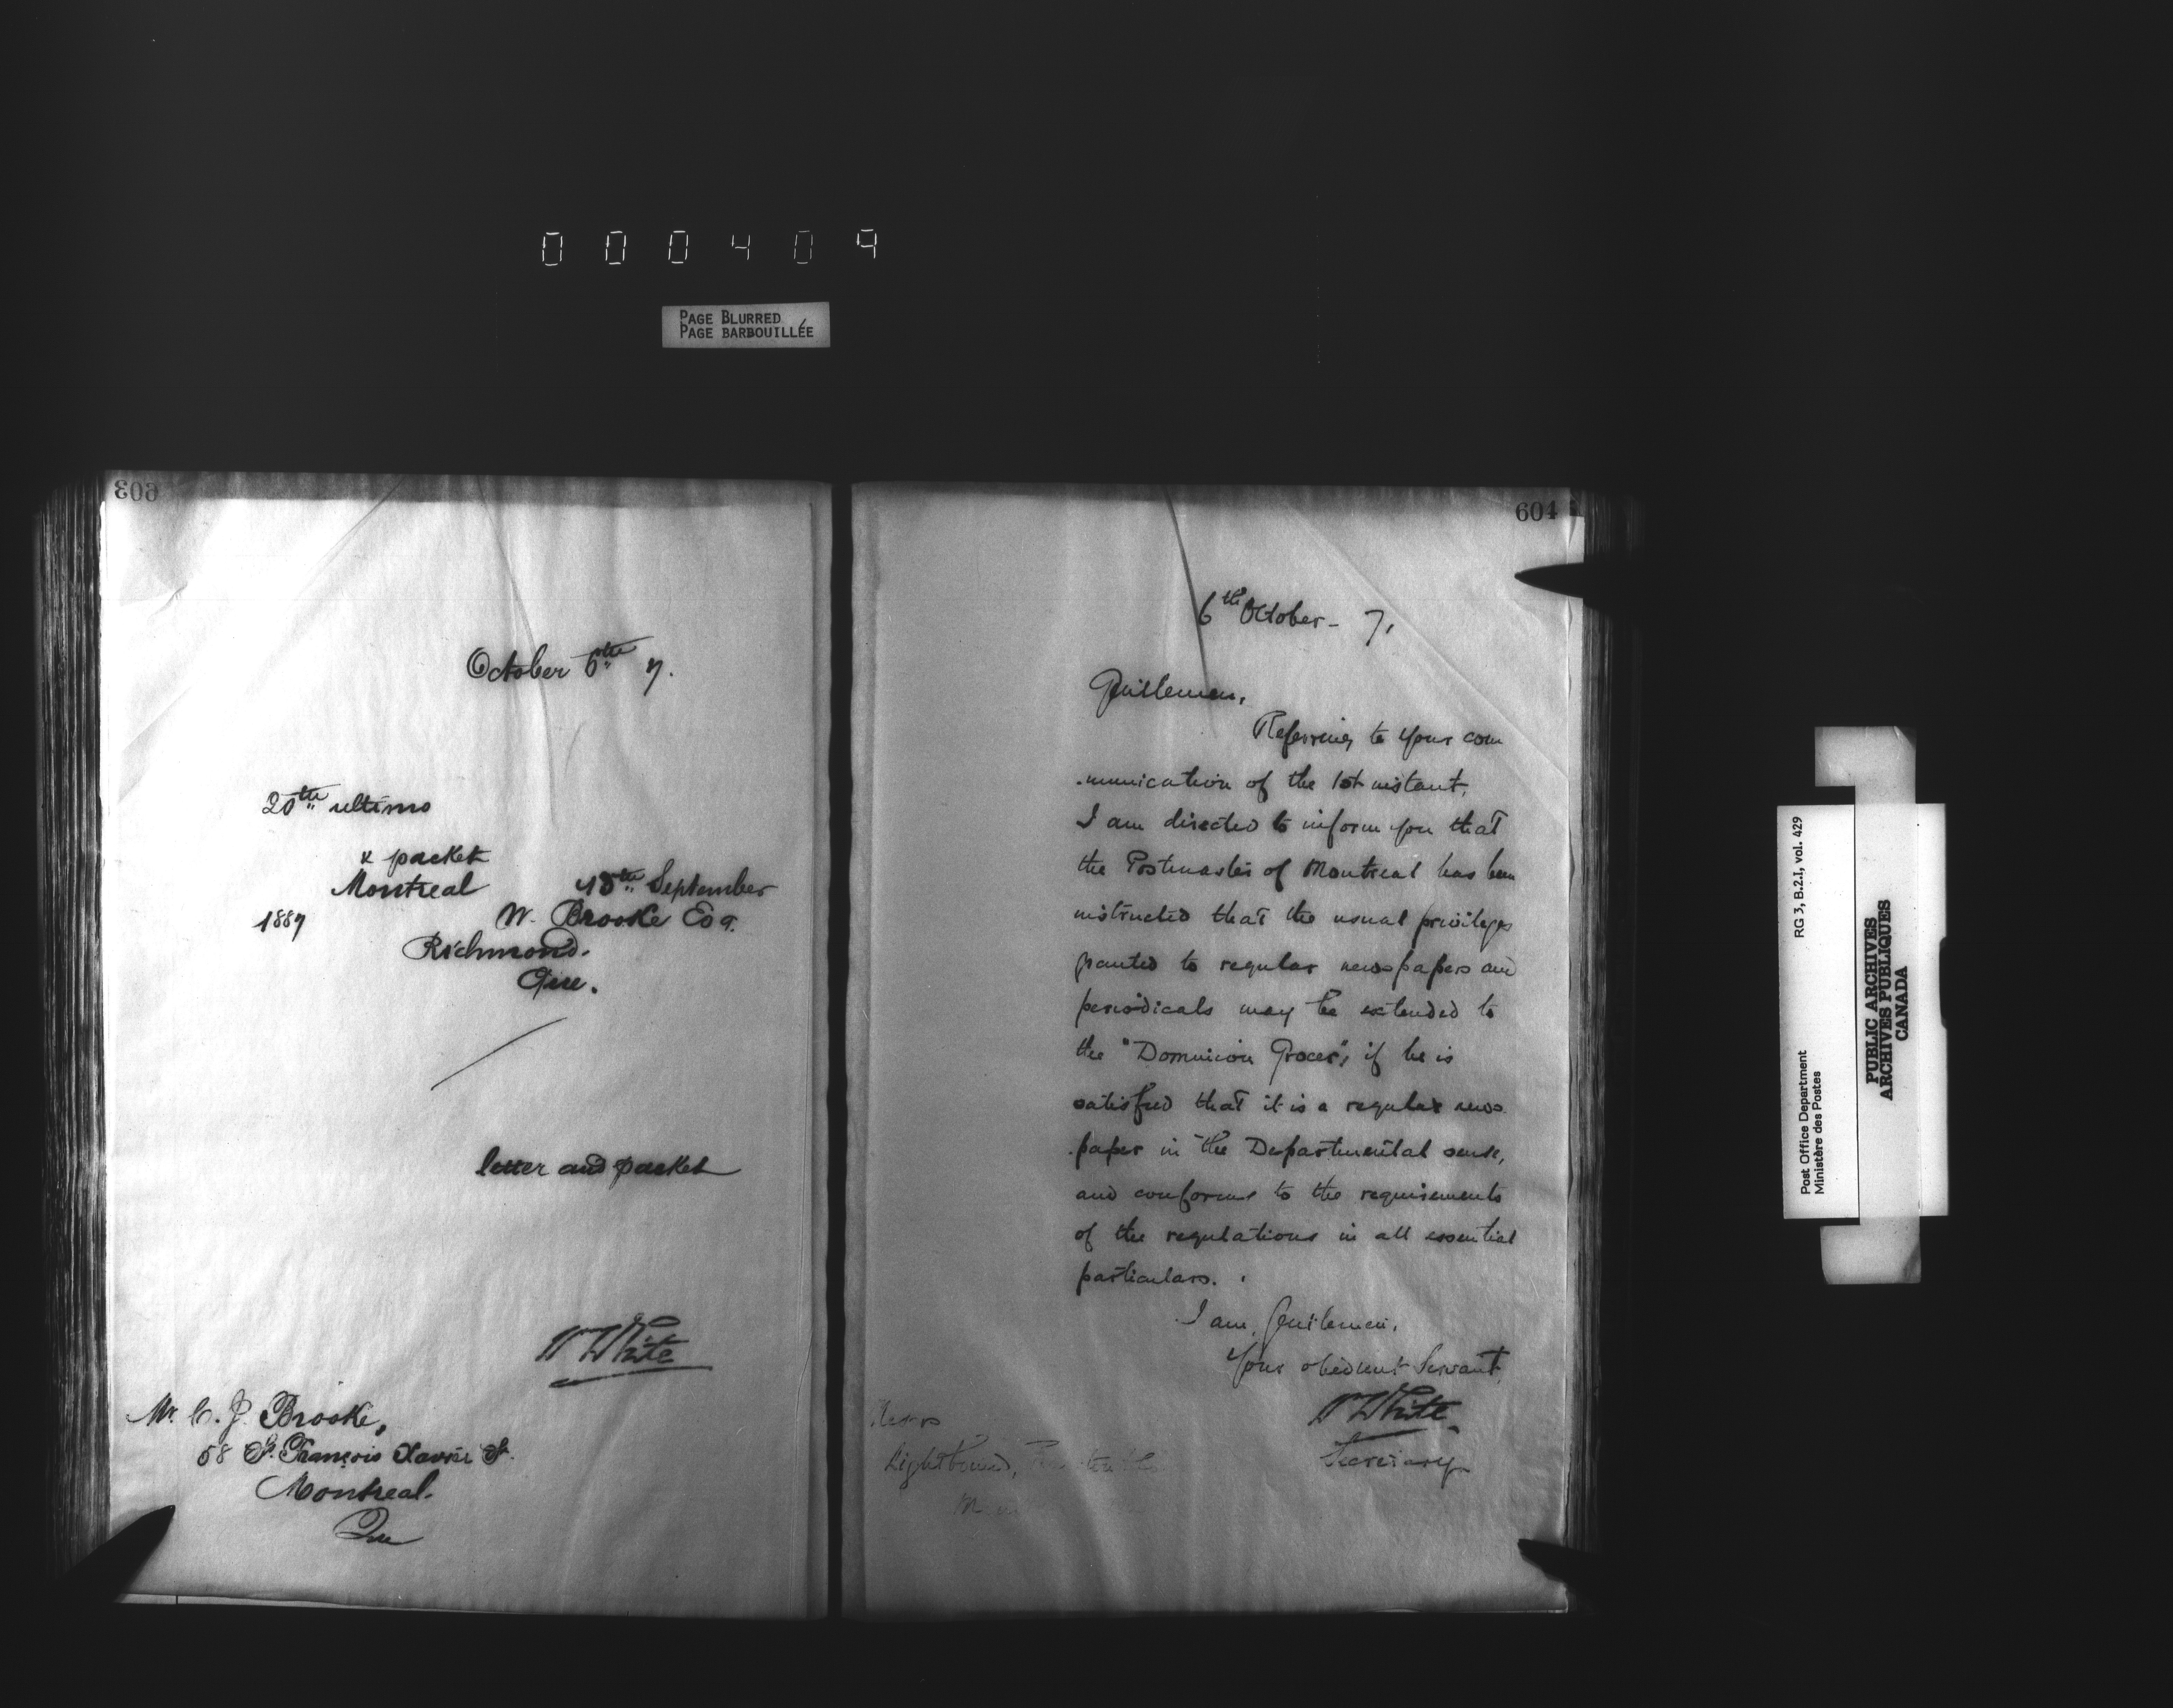 000409
PAGE BLURRED
PAGE BARBOUILLÉE
603
October 6th 7.
20th ultimo
& packet
Montreal 15th September
1887 W. Brooke Esq.
Richmond.
Que.
letter and packet
W White
Mr. C. J. Brooke,
58 St. François Xavier St.
Montreal.
Que
604
6th October - 7,
Gentlemen,
Referring to your com
-munication of the 1st instant,
I am directed to inform you that
the Postmaster of Montreal has been
instructed that the usual privileges
granted to regular newspapers and
periodicals may be extended to
the "Dominion Grocer", if he is
satisfied that it is a regular news-
-paper in the Departmental sense,
and conforms to the requirements
of the regulations in all essential
particulars.
I am, Gentlemen,
Your obedient Servant,
W White
Secretary
Messrs
Lightbound,
RG 3, B.2.1, vol. 429
Post Office Department
Ministère des Postes
PUBLIC ARCHIVES
ARCHIVES PUBLIQUES
CANADA